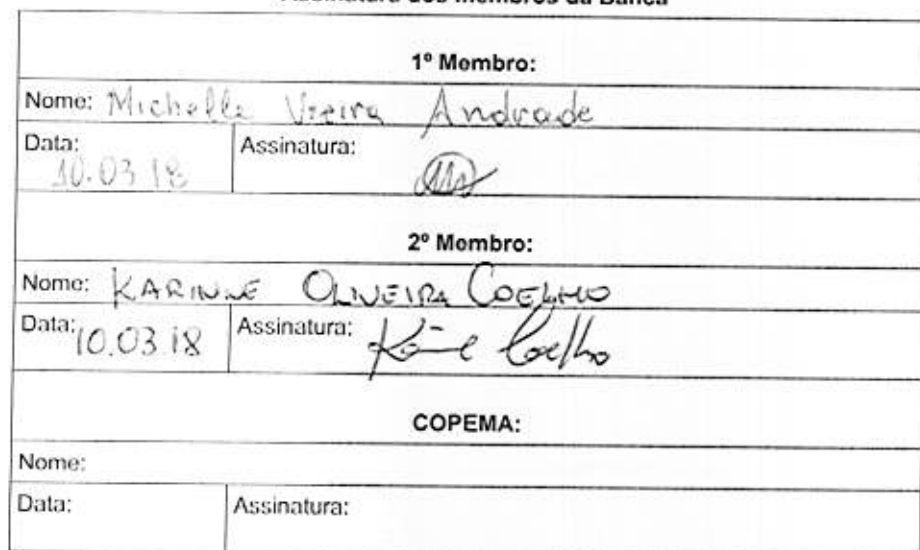 Assinatura dos membros da Banca
1º Membro:
Nome: Michelle Vieira Andrade
Data: 10.03.18 Assinatura:
2º Membro:
Nome: KARINNE OLIVEIRA COELHO
Data: 10.03.18 Assinatura: Coelho
COPEMA:
Nome:
Data: Assinatura: